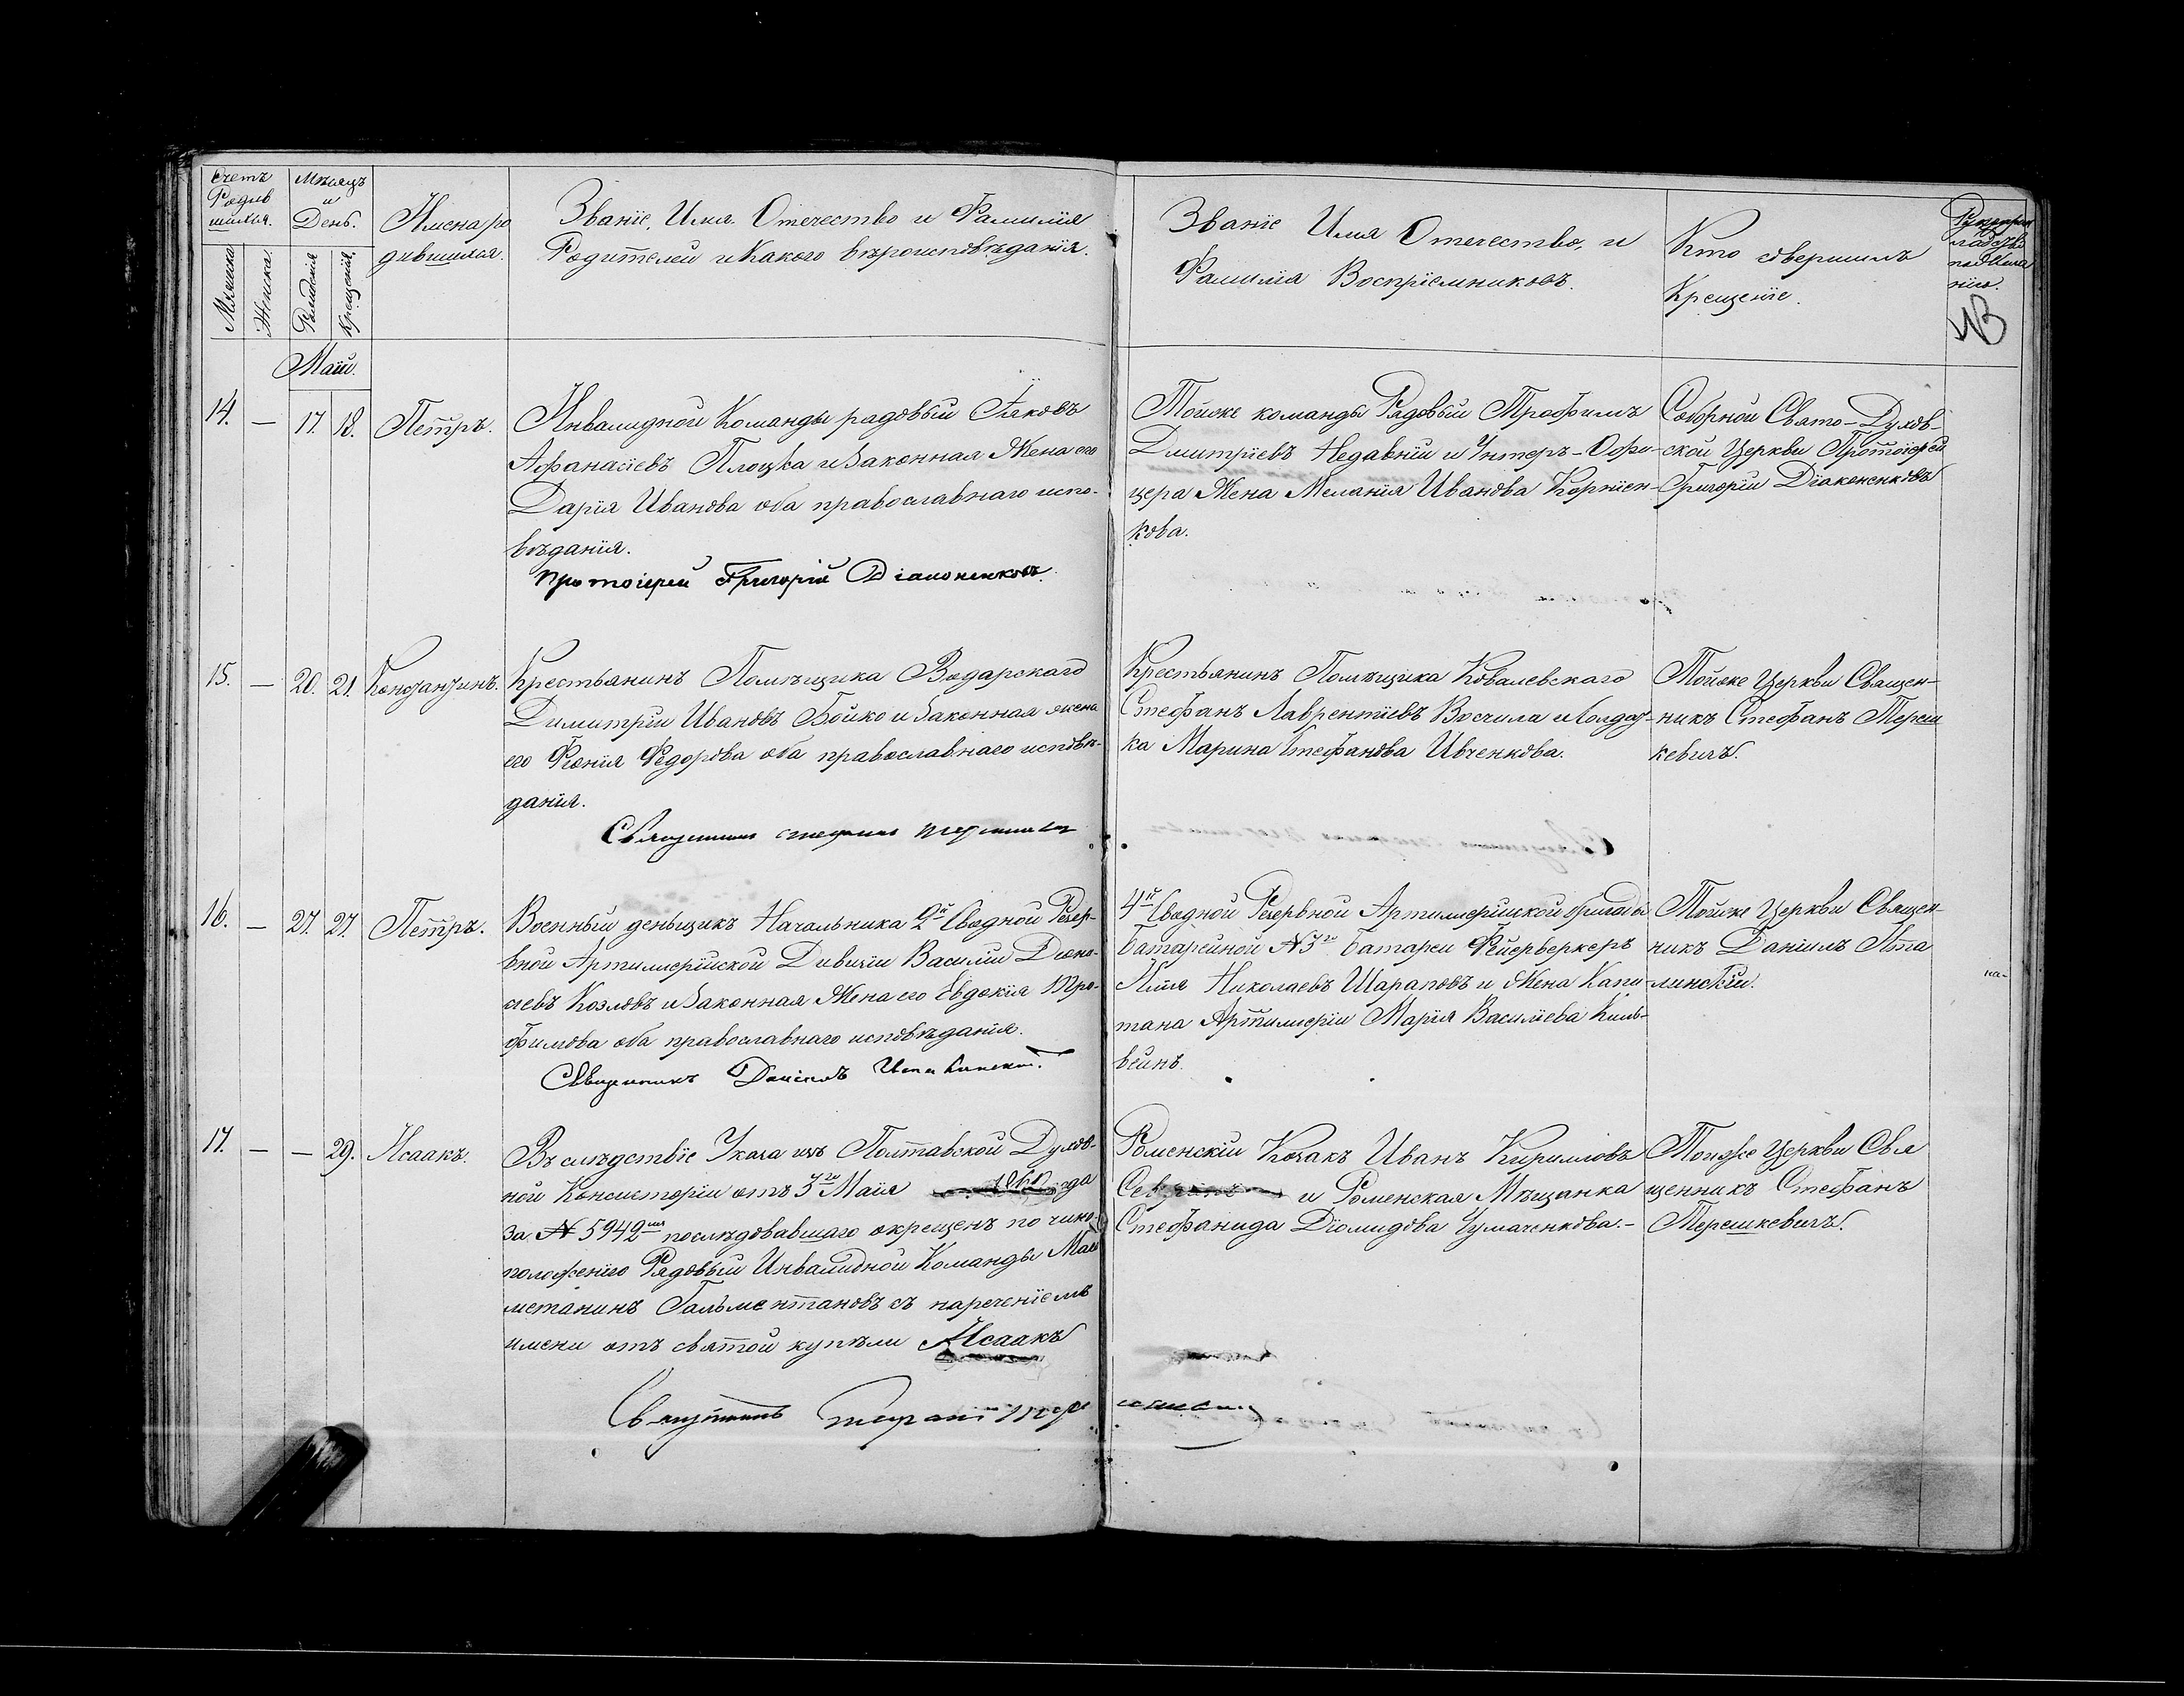 Счетъ Родив шихся.
Мѣсяцъ и День.
Имена ро дившихся.
Званіе, Имя. Отечество и Фамилія
Родителей и Какого вѣроисповѣданія.
Званіе Имя Отечество, и
Фамилія Воспріемниковъ.
Кто совершилъ
Крещеніе.
Мужеска Женска. Рожденія Крещенія.
Маій.
14. — 17. 18. Петръ.
Инвалидной Команды рядовый Іяковъ
Афанасіевъ Плоцка и законная Жена его
Дарія Иванова оба православнаго испо-
вѣданія.
Протоіерей Григорій Діаконенковъ.
Тойже команды Рядовый Трофимъ
Димитріевъ Недавній и Унтеръ-Офи-
цера Жена Меланія Иванова Корніен-
кова.
Соборной Свято-Духов-
ской Церкви Протоіерей
Григорій Діаконенковъ
15. — 20. 21. Константинъ.
Крестьянинъ Помѣщика Водарскаго
Димитрій Ивановъ Бойко и законная жена
его Фіонія Федорова оба православнаго исповѣ-
данія.
Священникъ Стефанъ Терешкевичъ
Крестьянинъ Помѣщика Ковалевскаго
Стефанъ Лаврентіевъ Восчила и Солдат-
ка Марина Стефанова Ивченкова.
Тойже Церкви Священ-
никъ Стефанъ Тереш
кевичъ.
16. — 27. 27. Петръ.
Военный деньщикъ Начальника 2й Сводной Резер-
вной Артиллерійской Дивизіи Василій Діони-
сіевъ Козловъ и законная Жена его Евдокія Тро-
фимова оба православнаго исповѣданія.
Священникъ Даніилъ
4й Сводной Резервной Артиллерійской бригады
батарейной №3го батареи Фейерверкеръ
Илія Николаевъ Шараповъ и Жена Капи-
тана Артиллеріи Марія Василіева Киль-
вейнъ.
Тойже Церкви Священ-
никъ Даніилъ Ита
линскій.
17. — — 29. Исаакъ.
Въ слѣдствіе Указа изъ Полтавской Духов-
ной Консисторіи отъ 3го Маія 1860 года
За № 5942мъ послѣдовавшаго окрещенъ по чино-
положенію Рядовый Инвалидной Команды Маго
метанинъ Гальментановъ съ нареченіемъ
имени отъ святой купѣли Исаакъ
Священникъ Стефанъ Терешкевичъ
Роменскій Козакъ Иванъ Кирилловъ
и Роменская Мѣщанка
Стефанида Діомидова Чумаченкова.-
Тойже Церкви Свя
щенникъ Стефанъ
Терешкевичъ.